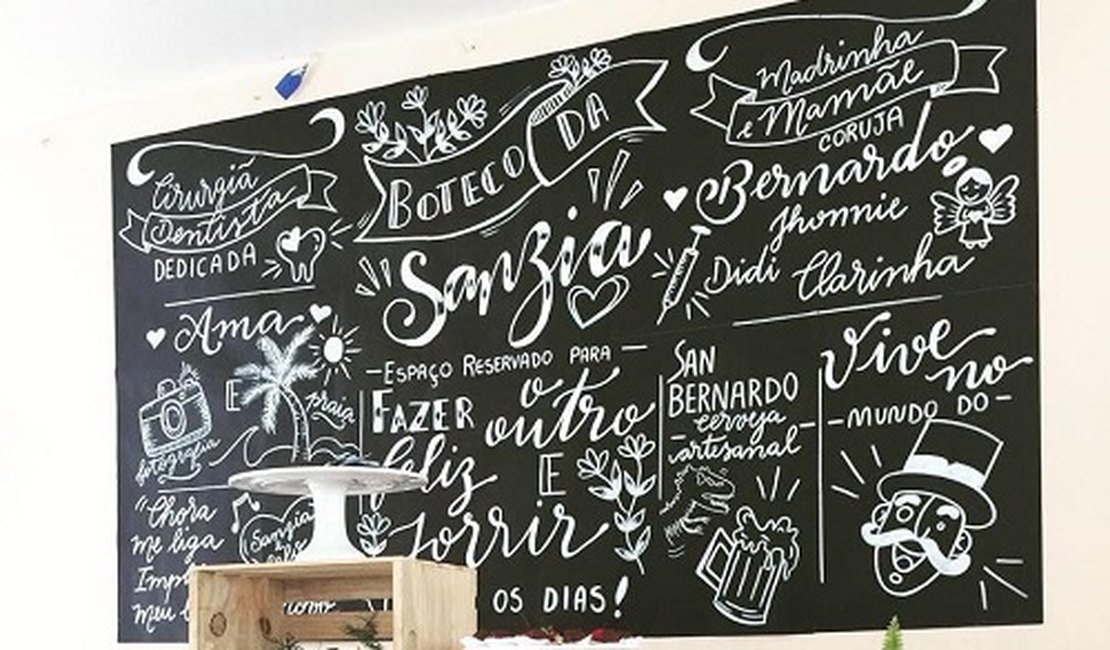 Cirurgiã
Dentista
DEDICADA
BOTECO DA
Sanzia
Madrinha
e Mamãe
CORUJA
Bernardo
Jhonnie
Didi Clarinha
Ama
fotografia
E
praia
"Chora
me liga
meu
Sanzia
ESPAÇO RESERVADO PARA
FAZER o outro
feliz E
sorrir
OS DIAS!
SAN
BERNARDO
cerveja
artesanal
Vive
no
MUNDO DO